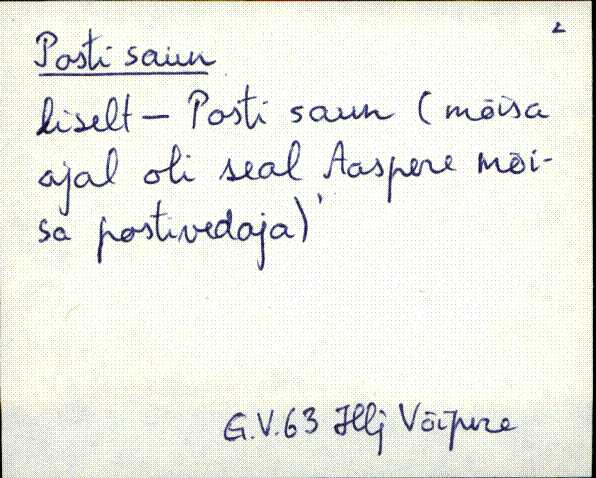 2
Posti saun
liselt – Posti saun (mõisa
ajal oli seal Aaspere mõi-
sa postivedaja)'
G.V.63 Hlj Võipere